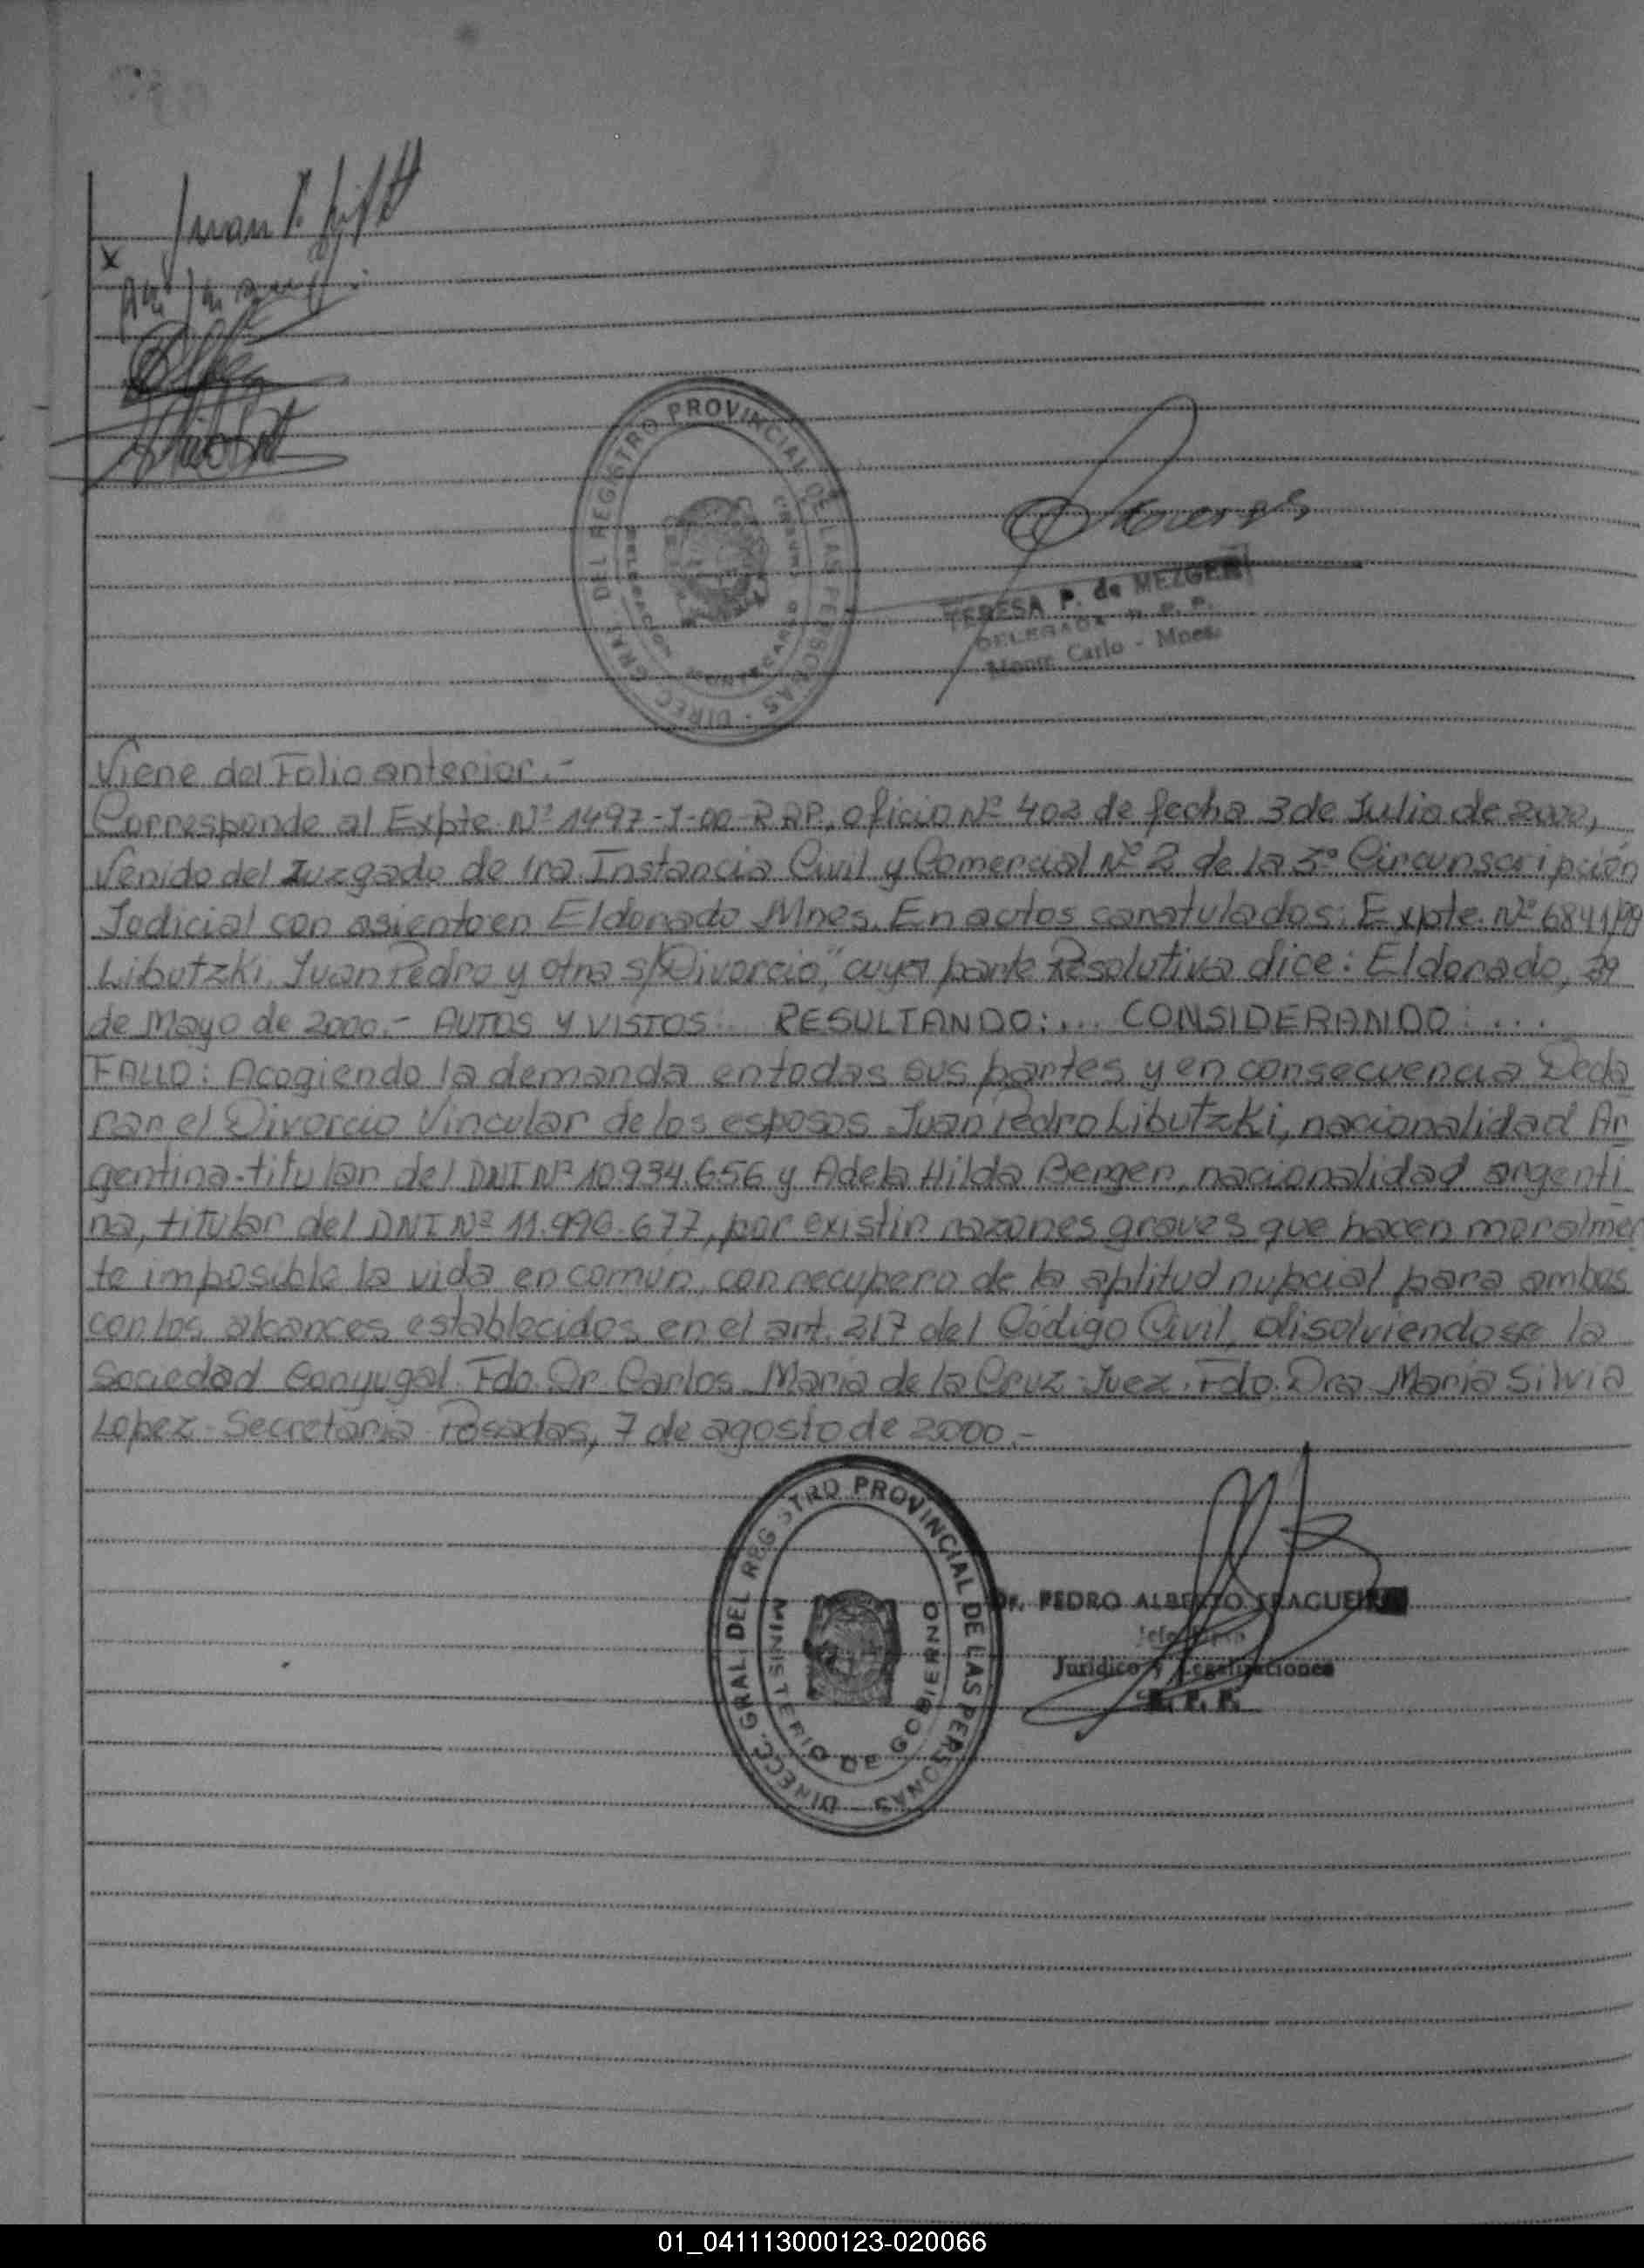 Juan P.
DIRECC. GRAL. DEL REGISTRO PROVINCIAL DE LAS PERSONAS
TERESA P. de MEZGER
DELEGADA R. P. P.
Monte Carlo - Mnes.
Viene del Folio anterior.-
Corresponde al Expte. Nº 1497-J-00-RPP, oficio Nº 402 de fecha 3 de Julio de 2000,
Venido del Juzgado de 1ra. Instancia Civil y Comercial Nº 2 de la 3º Circunscripción
Judicial con asiento en Eldorado Mnes. En autos caratulados: Expte. Nº 6841/99
Libutzki, Juan Pedro y otra s/Divorcio", cuya parte Resolutiva dice: Eldorado,
de Mayo de 2000.- AUTOS Y VISTOS: RESULTANDO:... CONSIDERANDO:...
FALLO: Acogiendo la demanda en todas sus partes y en consecuencia Decla
rar el Divorcio Vincular de los esposos Juan Pedro Libutzki, nacionalidad Ar
gentina-titular del DNI Nº 10.934.656 y Adela Hilda Berger, nacionalidad argenti
na, titular del DNI Nº 11.996.677, por existir razones graves que hacen moralmen
te imposible la vida en común, con recupero de la aptitud nupcial para ambos
con los alcances establecidos en el art. 217 del Código Civil, disolviendose la
Sociedad Conyugal. Fdo. Dr. Carlos María de la Cruz-Juez. Fdo. Dra. María Silvia
Lopez-Secretaria-Posadas, 7 de agosto de 2000.-
DIRECC. GRAL. DEL REGISTRO PROVINCIAL DE LAS PERSONAS
MINISTERIO DE GOBIERNO
Dr. PEDRO ALBERTO FRAGUEIRO
Jefe Dpto.
Jurídico y Legalizaciones
R. P. P.
01_041113000123-020066